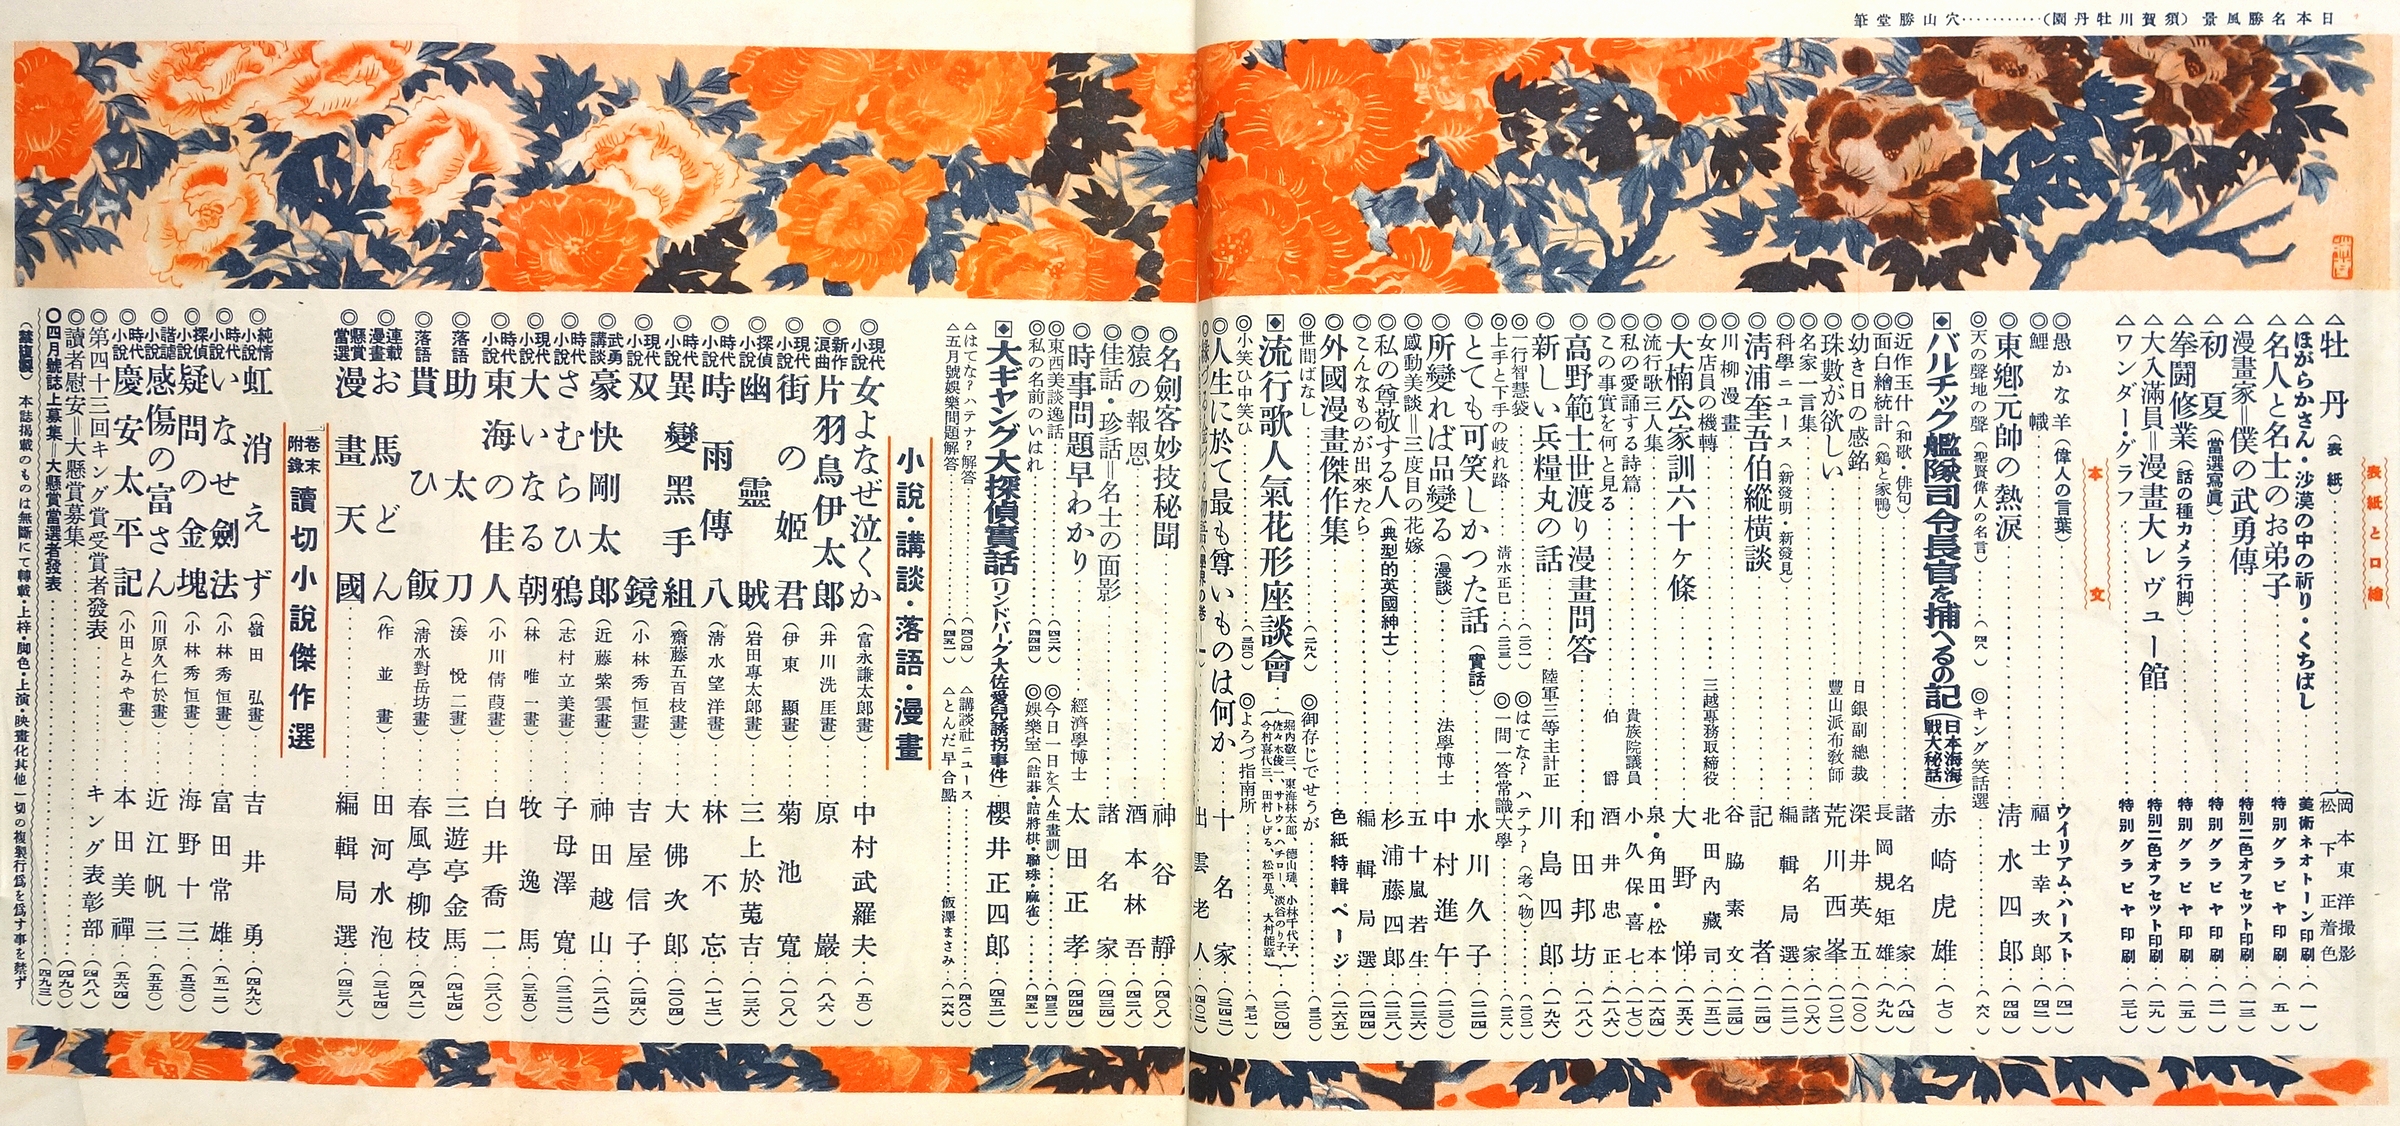 日本名勝風景(須賀川牡丹園)…………穴山勝堂筆
表紙と口繪
△牡丹(表紙)……岡本東洋撮影 松下正着色
△ほがらかさん・沙漠の中の祈り・くちばし……美術ネオトーン印刷…(一)
△名人と名士のお弟子……特別グラビヤ印刷…(五)
△漫畫家=僕の武勇傳……特別二色オフセツト印刷…(一三)
△初夏(當選寫眞)……特別グラビヤ印刷…(二一)
△拳闘修業(話の種カメラ行脚)……特別グラビヤ印刷…(二五)
△大入滿員=漫畫大レヴュー館……特別二色オフセツト印刷…(二九)
△ワンダー・グラフ……特別グラビヤ印刷…(三七)
本文
◎愚かな羊(偉人の言葉)……ウイリアム・ハースト…(四一)
◎鯉幟……福士幸次郎…(四二)
◎東鄕元帥の熱涙……淸水四郎…(四四)
◎天の聲地の聲(聖賢偉人の名言)…(四八)
◎キング笑話選……(六八)
バルチック艦隊司令長官を捕へるの記(日本海海戰大秘話)赤崎虎雄…(七〇)
◎近作玉什(和歌・俳句)……諸名家…(八四)
◎面白繪統計(鷄と家鴨)……長岡規矩雄…(九九)
◎幼き日の感銘……日銀副總裁 深井英五…(一〇〇)
◎珠數が欲しい……豐山派布敎師 荒川西峯…(一〇二)
◎名家一言集……諸名家…(一〇六)
◎科學ニュース(新發明・新發見)……編輯局選…(一二二)
◎淸浦奎吾伯縱橫談……記者…(一二四)
◎川柳漫畫……谷脇素文…(一三四)
◎女店員の機轉……三越專務取締役 北田內藏司…(一五二)
◎大楠公家訓六十ヶ條……大野悌…(一五六)
◎流行歌三人集……泉・角田・松本…(一六四)
◎私の愛誦する詩篇……貴族院議員 小久保喜七…(一七〇)
◎この事實を何と見る……伯爵 酒井忠正…(一八六)
◎高野範士世渡り漫畫問答……和田邦坊…(一八八)
◎新しい兵糧丸の話……陸軍三等主計正 川島四郎…(一九六)
◎一行智慧袋……(二〇一)
◎はてな?ハテナ?(考へ物)……(二〇二)
◎上手と下手の岐れ路……淸水正巳…(二二三)
◎一問一答常識大學……(二二八)
◎とても可笑しかつた話(實話)……水川久子…(二二四)
◎所變れば品變る(漫談)……法學博士 中村進午…(二三〇)
◎感動美談=三度目の花嫁……五十嵐若生…(二三六)
◎私の尊敬する人(典型的英國紳士)……杉浦藤四郎…(二三八)
◎こんなものが出來たら……編輯局選…(二六八)
◎外國漫畫傑作集……色紙特輯ページ…(二六五)
◎世間ばなし……(二九八)
◎御存じでせうが……(三二〇)
流行歌人氣花形座談會(堀內敬三、東海林太郎、德山璉、小林千代子、佐々木俊一、サトウ・ハチロー、淡谷のり子、今村喜代三、田村しげる、松平晃、大村能章)…(三〇四)
◎小笑ひ中笑ひ……(三四〇)
◎よろづ指南所……(三七一)
◎人生に於て最も尊いものは何か……十名家…(三四二)
出雲老人…(四〇二)
◎名劍客妙技秘聞……神谷靜…(四〇八)
◎猿の報恩……酒本林吾…(四二八)
◎佳話・珍話=名士の面影……諸名家…(四三四)
◎時事問題早わかり……經濟學博士 太田正孝…(四四四)
◎東西美談逸話……(四二六)
◎今日一日を(人生畫訓)……(四三三)
◎私の名前のいはれ……(四四四)
◎娛樂室(詰碁・詰將棋・聯珠・麻雀)…(四五一)
大ギャング大探偵實話(リンドバーグ大佐愛兒誘拐事件)櫻井正四郎…(四五二)
△はてな?ハテナ?解答……(四〇四)
△講談社ニュース……(四八〇)
△五月號娛樂問題解答……(四五一)
△とんだ早合點……飯澤まさみ…(一六六)
小說・講談・落語・漫畫
◎現代小說 女よなぜ泣くか(富永謙太郎畫)……中村武羅夫…(五〇)
◎新作浪曲 片羽鳥伊太郎(井川洗厓畫)……原巖…(八六)
◎現代小說 街の姬君(伊東顯畫)……菊池寬…(一〇八)
◎探偵小說 幽靈賊(岩田專太郎畫)……三上於菟吉…(一三六)
◎時代小說 時雨傳八(淸水望洋畫)……林不忘…(一七二)
◎時代小說 異變黑手組(齋藤五百枝畫)……大佛次郎…(二〇四)
◎現代小說 双鏡(小林秀恒畫)……吉屋信子…(二四六)
◎武勇講談 豪快剛太郎(近藤紫雲畫)……神田越山…(二八二)
◎時代小說 さむらひ鴉(志村立美畫)……子母澤寬…(三二二)
◎現代小說 大いなる朝(林唯一畫)……牧逸馬…(三五〇)
◎時代小說 東海の佳人(小川倩葭畫)……白井喬二…(三八〇)
◎落語 助太刀(湊悅二畫)……三遊亭金馬…(四七四)
◎落語 貰ひ飯(淸水對岳坊畫)……春風亭柳枝…(四八二)
◎連載漫畫 お馬どん(作並畫)……田河水泡…(三七四)
◎懸賞當選 漫畫天國……編輯局選…(四三八)
卷末附錄 讀切小說傑作選
◎純情小說 虹消えず(嶺田弘畫)……吉井勇…(四九六)
◎時代小說 いなせ劍法(小林秀恒畫)……富田常雄…(五一二)
◎探偵小說 疑問の金塊(小林秀恒畫)……海野十三…(五三〇)
◎諧謔小說 感傷の富さん(川原久仁於畫)……近江帆三…(五五〇)
◎時代小說 慶安太平記(小田とみや畫)……本田美禪…(五六四)
◎第四十三回キング賞受賞者發表……キング表彰部…(四八八)
◎讀者慰安=大懸賞募集……(四九〇)
◎四月號誌上募集=大懸賞當選者發表……(四九三)
(禁複製) 本誌揭載のものは無斷にて轉載・上梓・脚色・上演・映畫化其他一切の複製行爲を爲す事を禁ず